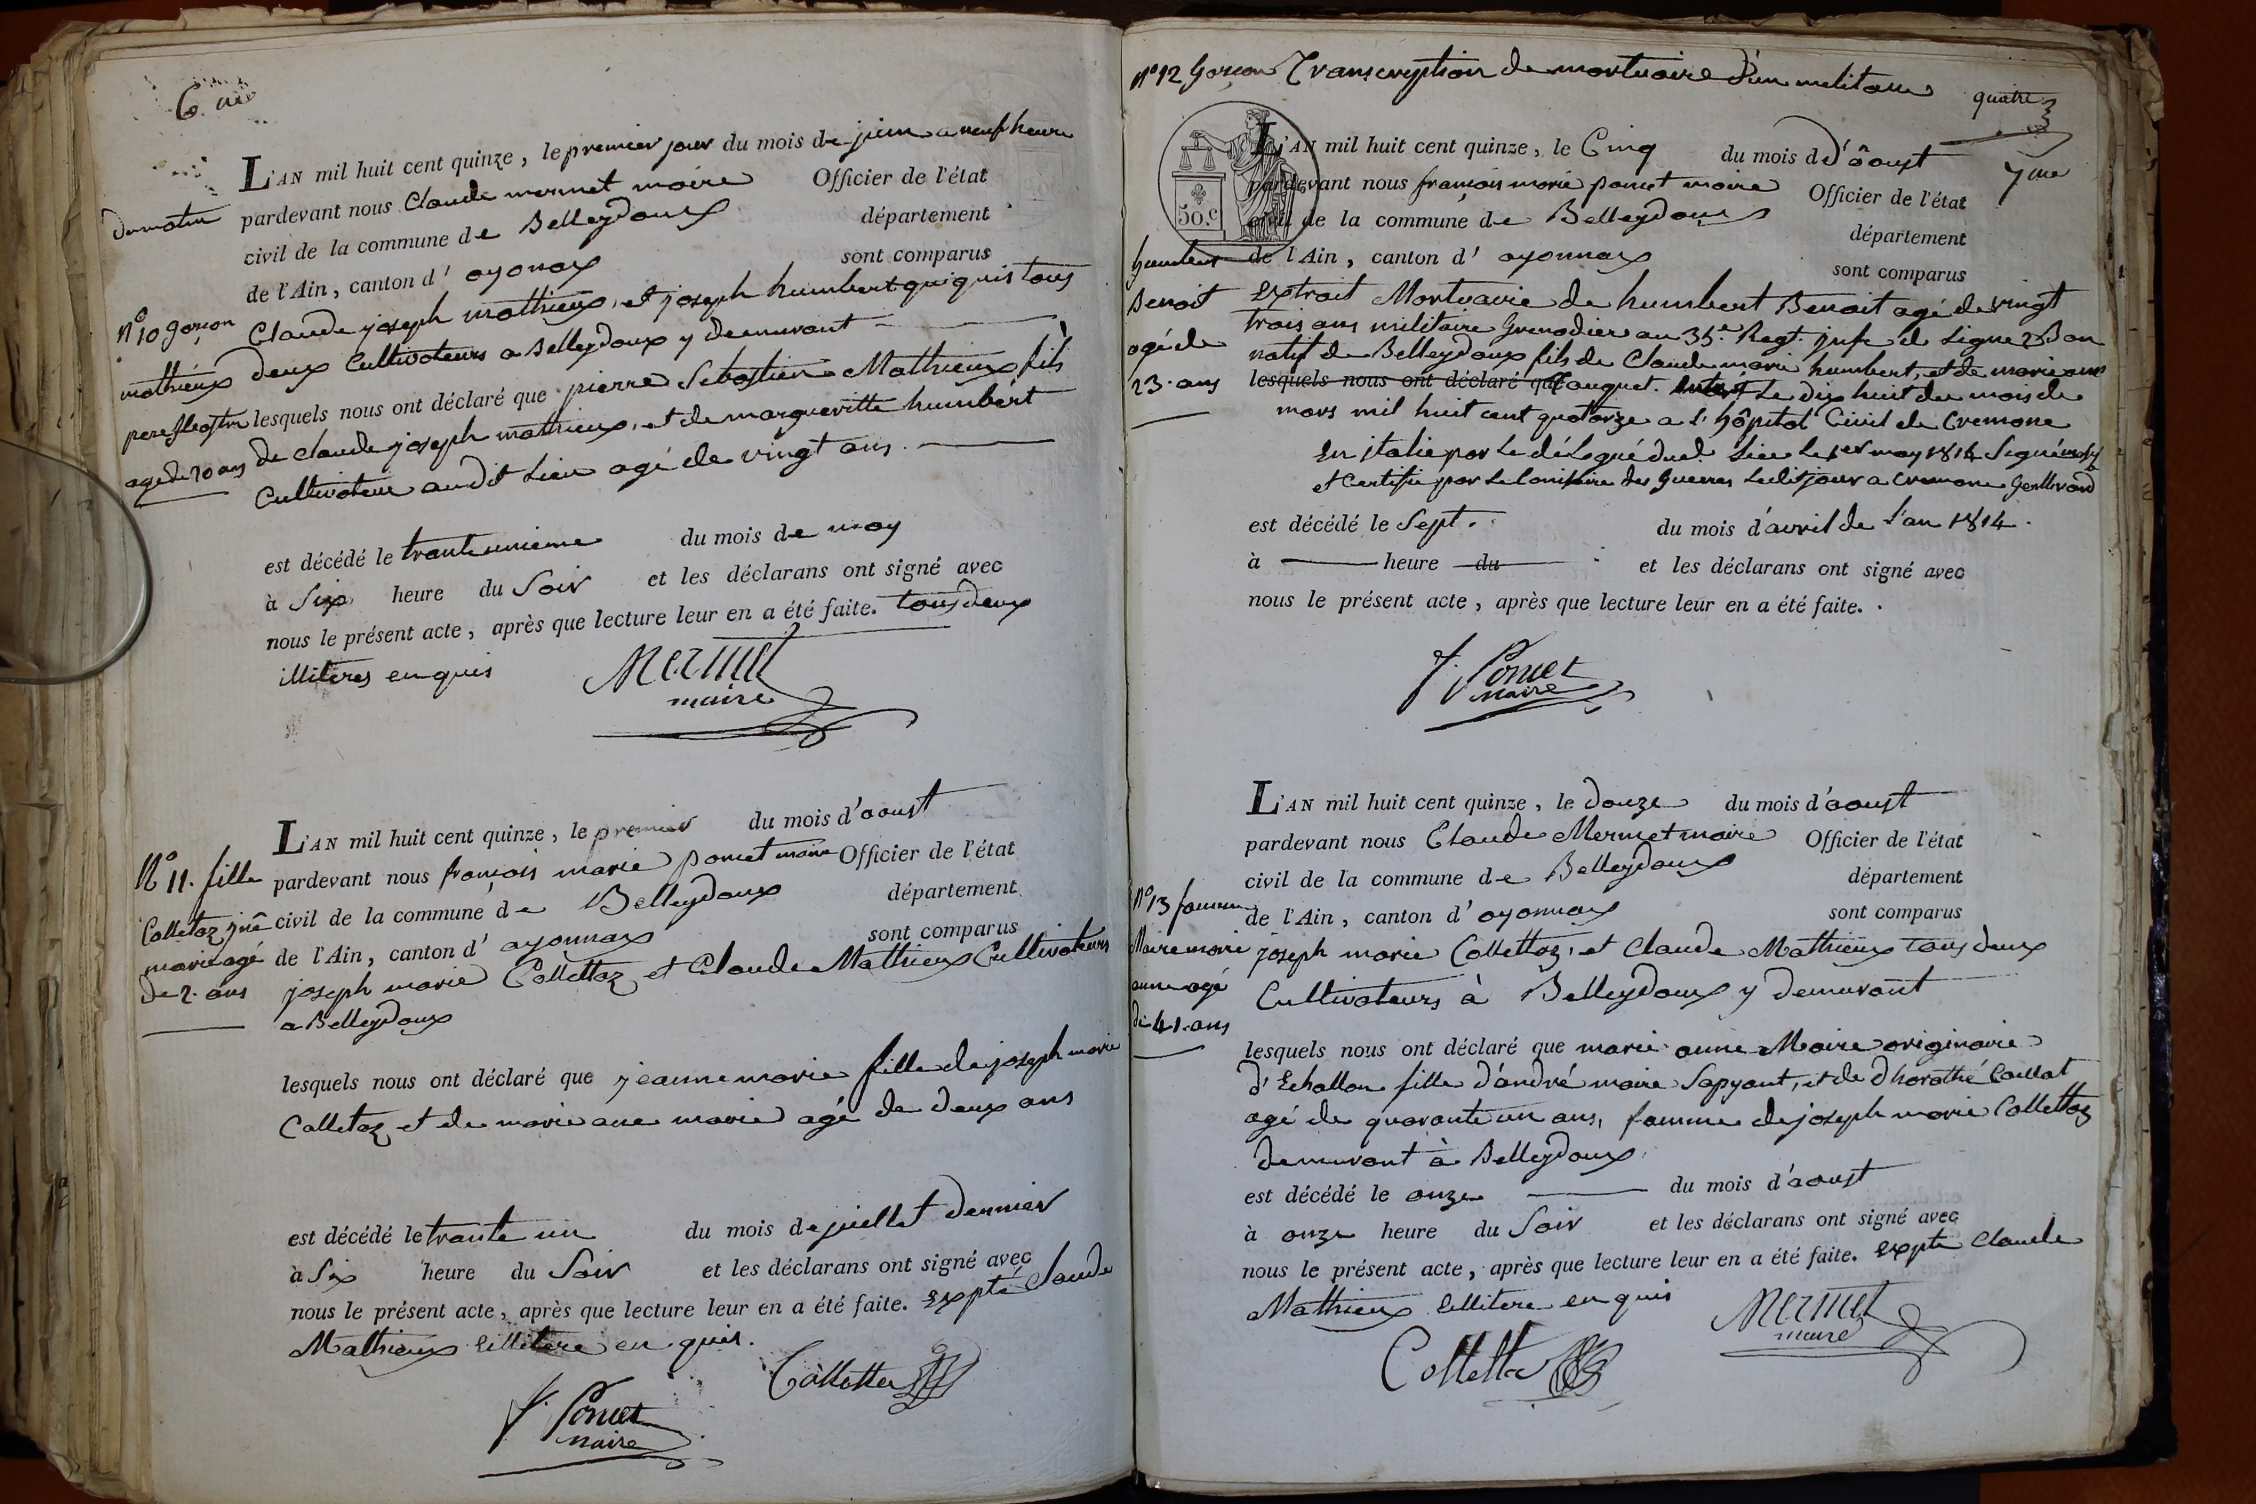 6.me
L'AN mil huit cent quinze, le premier jour du mois de juin a neuf heure
du matin pardevant nous Claude mermet maire Officier de l'état
civil de la commune de Belleydoux département
de l'Ain, canton d' oyonax sont comparus
N° 10 garçon Claude joseph mathieux, et joseph humbert quiquis tous
mathieux deux Cultivateurs a Belleydoux y demurant
lesquels nous ont déclaré que pierre Sebastien Mathieux fils
agé de 20 ans de claude joseph mathieux, et de margueritte humbert
Cultivateur audit Lieu agé de vingt ans.
est décédé le trante unieme du mois de may
à Six heure du Soir et les déclarans ont signé avec
nous le présent acte, après que lecture leur en a été faite. tous deux
illiteres enquis
Mermet
maire
L'AN mil huit cent quinze, le premier du mois d'aoust
N° 11. fille pardevant nous françois marie poncet maire Officier de l'état
Colletaz jne civil de la commune de Belleydoux département
marie agé de l'Ain, canton d' ayonnax sont comparus
de 2. ans joseph marie Collettaz et Claude Mathieux Cultivateurs
a Belleydoux
lesquels nous ont déclaré que jeanne marie fille de joseph marie
Colletaz et de marie ane marie agé de deux ans
est décédé le trante un du mois de juellet dernier
à Six heure du Soir et les déclarans ont signé avec
nous le présent acte, après que lecture leur en a été faite. expté Claude
Mathieux illitere en quis.
Colletta
f. Poncet
maire
N° 12 Garçon Transcryption de mortuaire d'un militaire
quatre
7me
L'AN mil huit cent quinze, le Cinq du mois d d'âoust
pardevant nous françois marie poncet maire Officier de l'état
50.c
civil de la commune de Belleydoux département
humbert de l'Ain, canton d' oyonnax sont comparus
Benoit Extrait Mortuaire de humbert Benoit agé de vingt
agé de trois ans militaire Grenadier au 35.e Regt. jnfe de Ligne 2 Bon
natif de Belleydoux fils de Claude marie humbert, et de marie ane
23. ans lesquels nous ont déclaré que Le dix huit du mois de
mars mil huit cent quatorze a l'hôpital Civil de Cremone
En italie par Le délégué dud. Lieu Le 1er may 1814 Signé
et Certifié par Le Comissaire des Guerres Ledit jour a Cremone
est décédé le Sept. du mois d'avril de l'an 1814.
à heure du et les déclarans ont signé avec
nous le présent acte, après que lecture leur en a été faite.
f. Poncet
maire
L'AN mil huit cent quinze, le douze du mois d'aoust
pardevant nous Claude Mermet maire Officier de l'état
civil de la commune de Belleydoux département
N° 13 famme de l'Ain, canton d' oyonnax sont comparus
Maire marie joseph marie Collettaz, et Claude Mathieux tous deux
anne agé Cultivateurs à Belleydoux y demurant
de 41. ans
lesquels nous ont déclaré que marie anne Maire originaire
d'Echallon fille d'andré maire Sapyant, et de dhorothé Caillat
agé de quarante un ans, famme de joseph marie Collettaz
demurant à Belleydoux
est décédé le onze du mois d'aoust
à onze heure du Soir et les déclarans ont signé avec
nous le présent acte, après que lecture leur en a été faite. expté Claude
Mathieux illitere en quis
Mermet
maire
Colletta